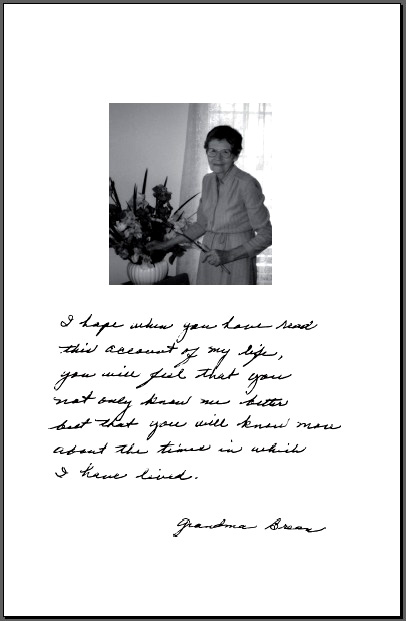 I hope when you have read
this account of my life,
you will feel that you
not only know me better
but that you will know more
about the times in which
I have lived.
Grandma